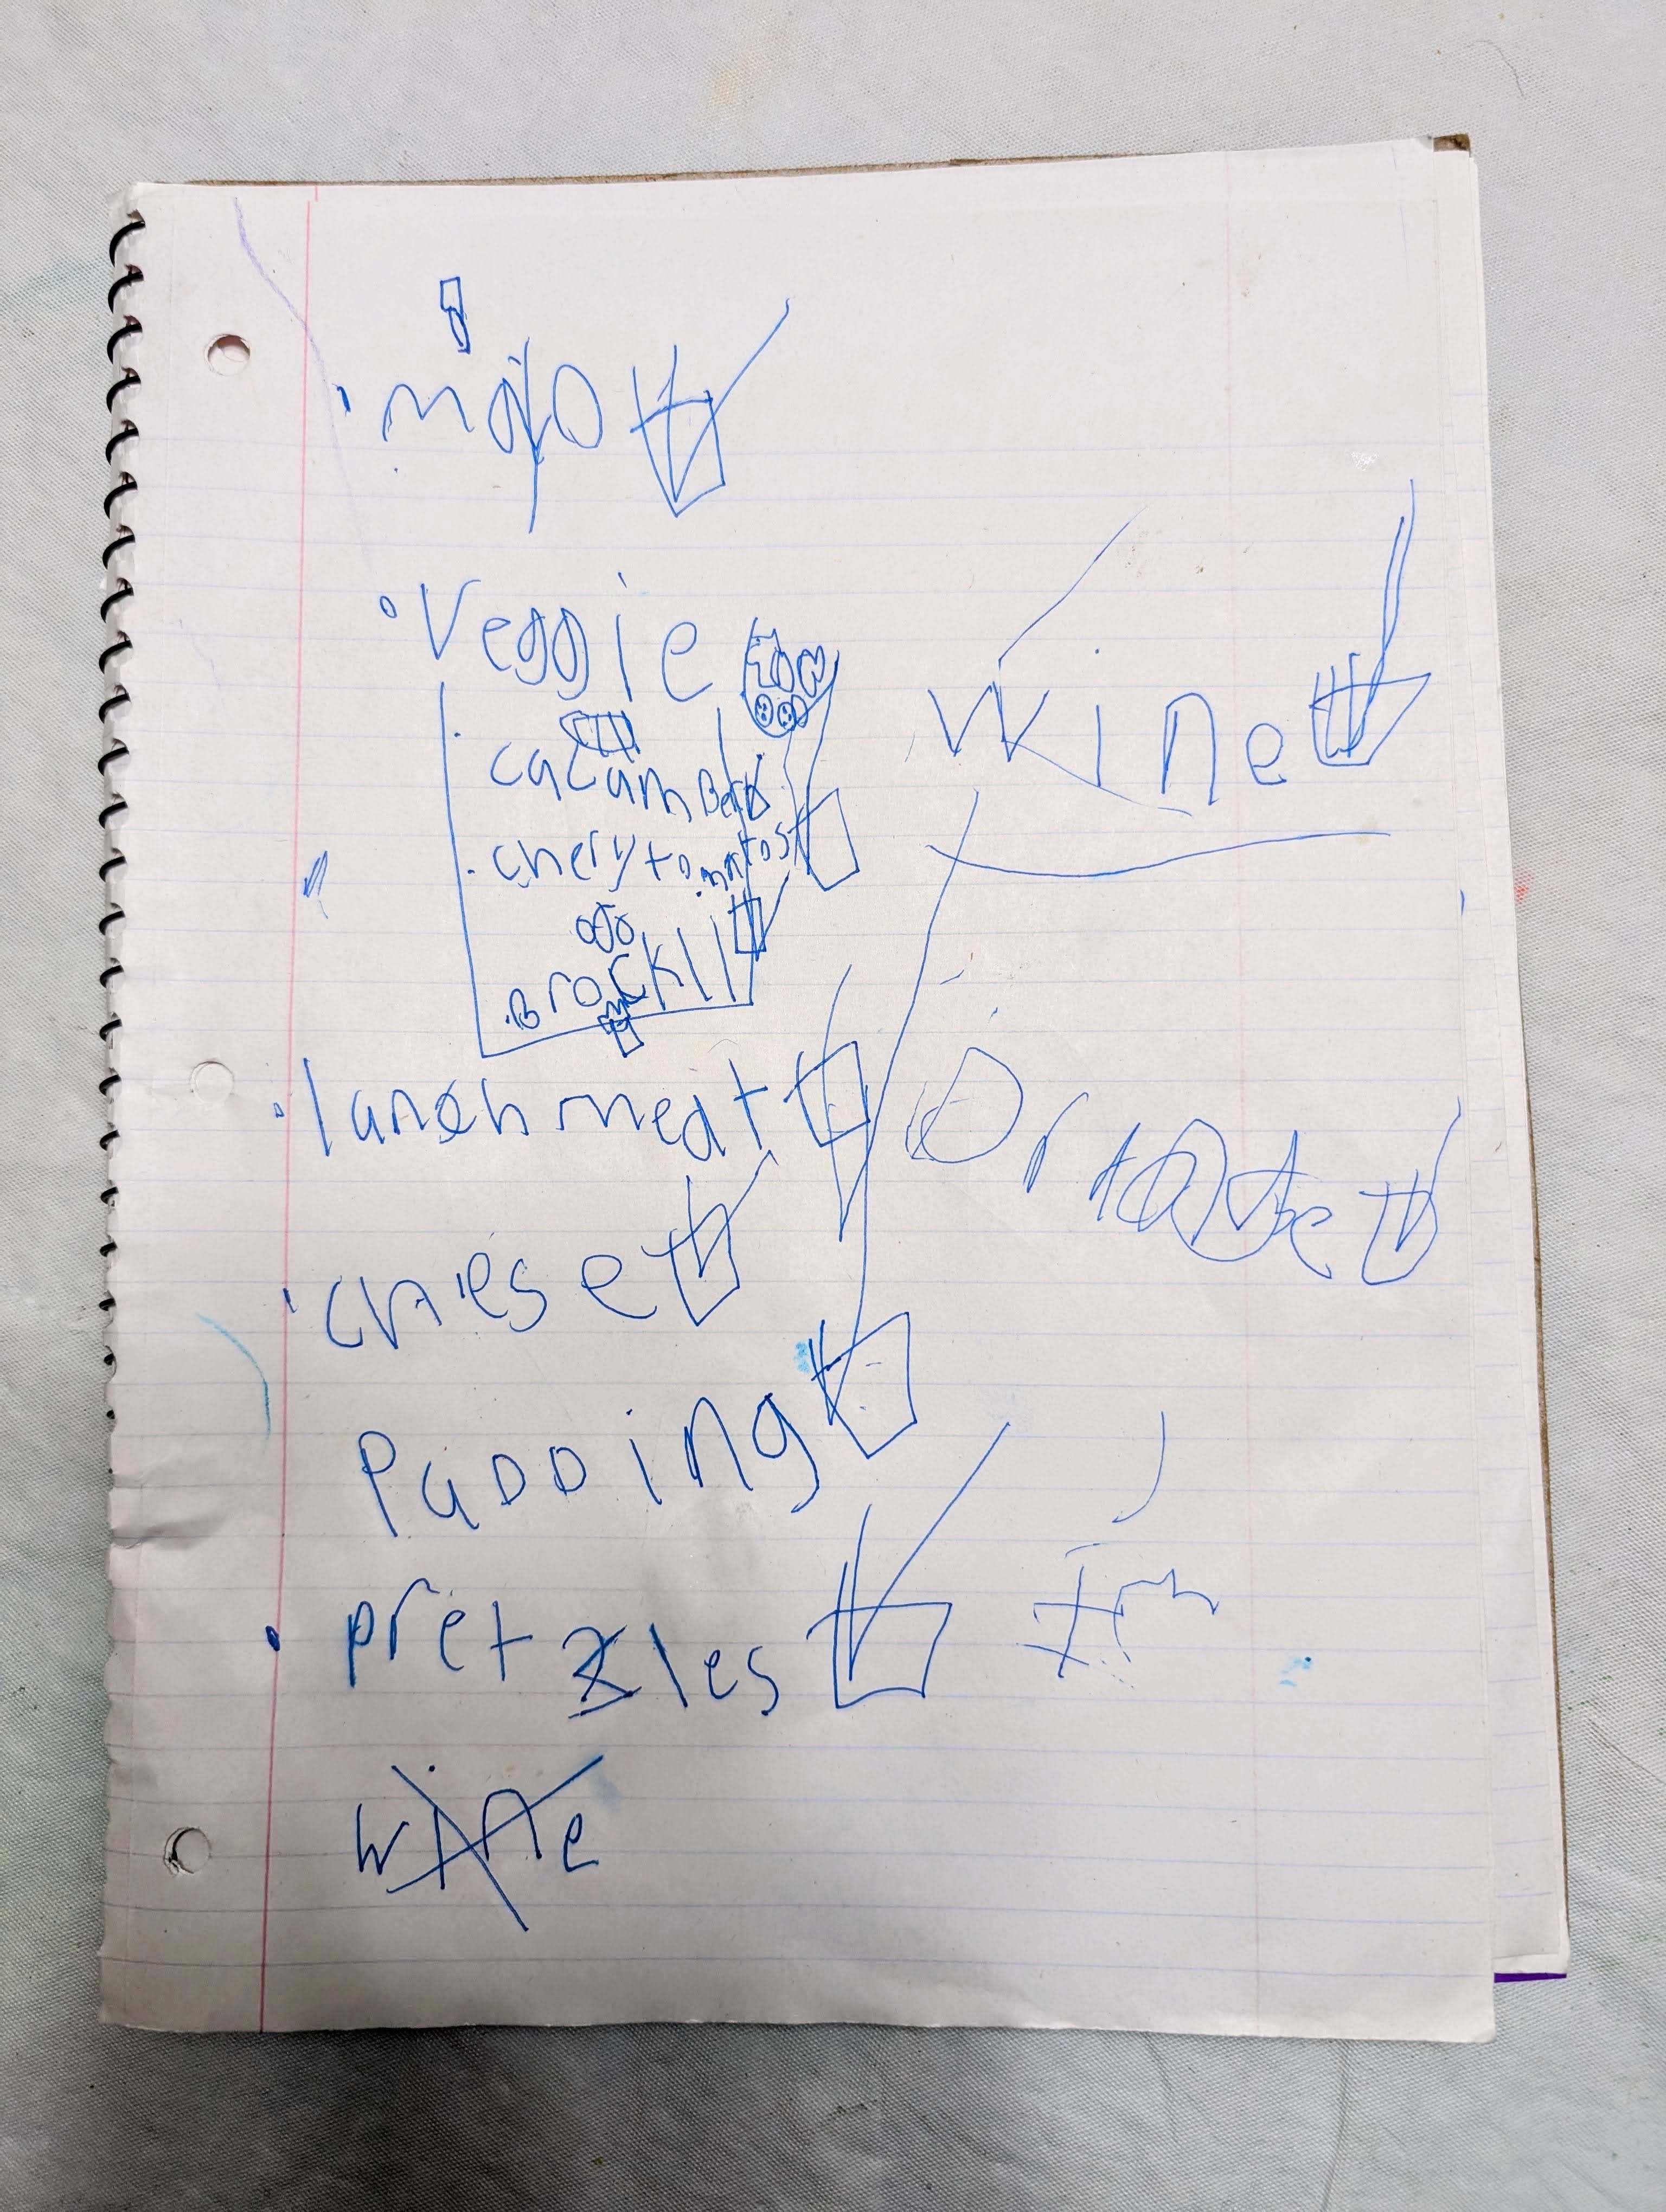 mayo
Veggie
cucumber
chery tomatos
Brockli
lunch meat
cheese
Pudding
pretzles
wine
Wine